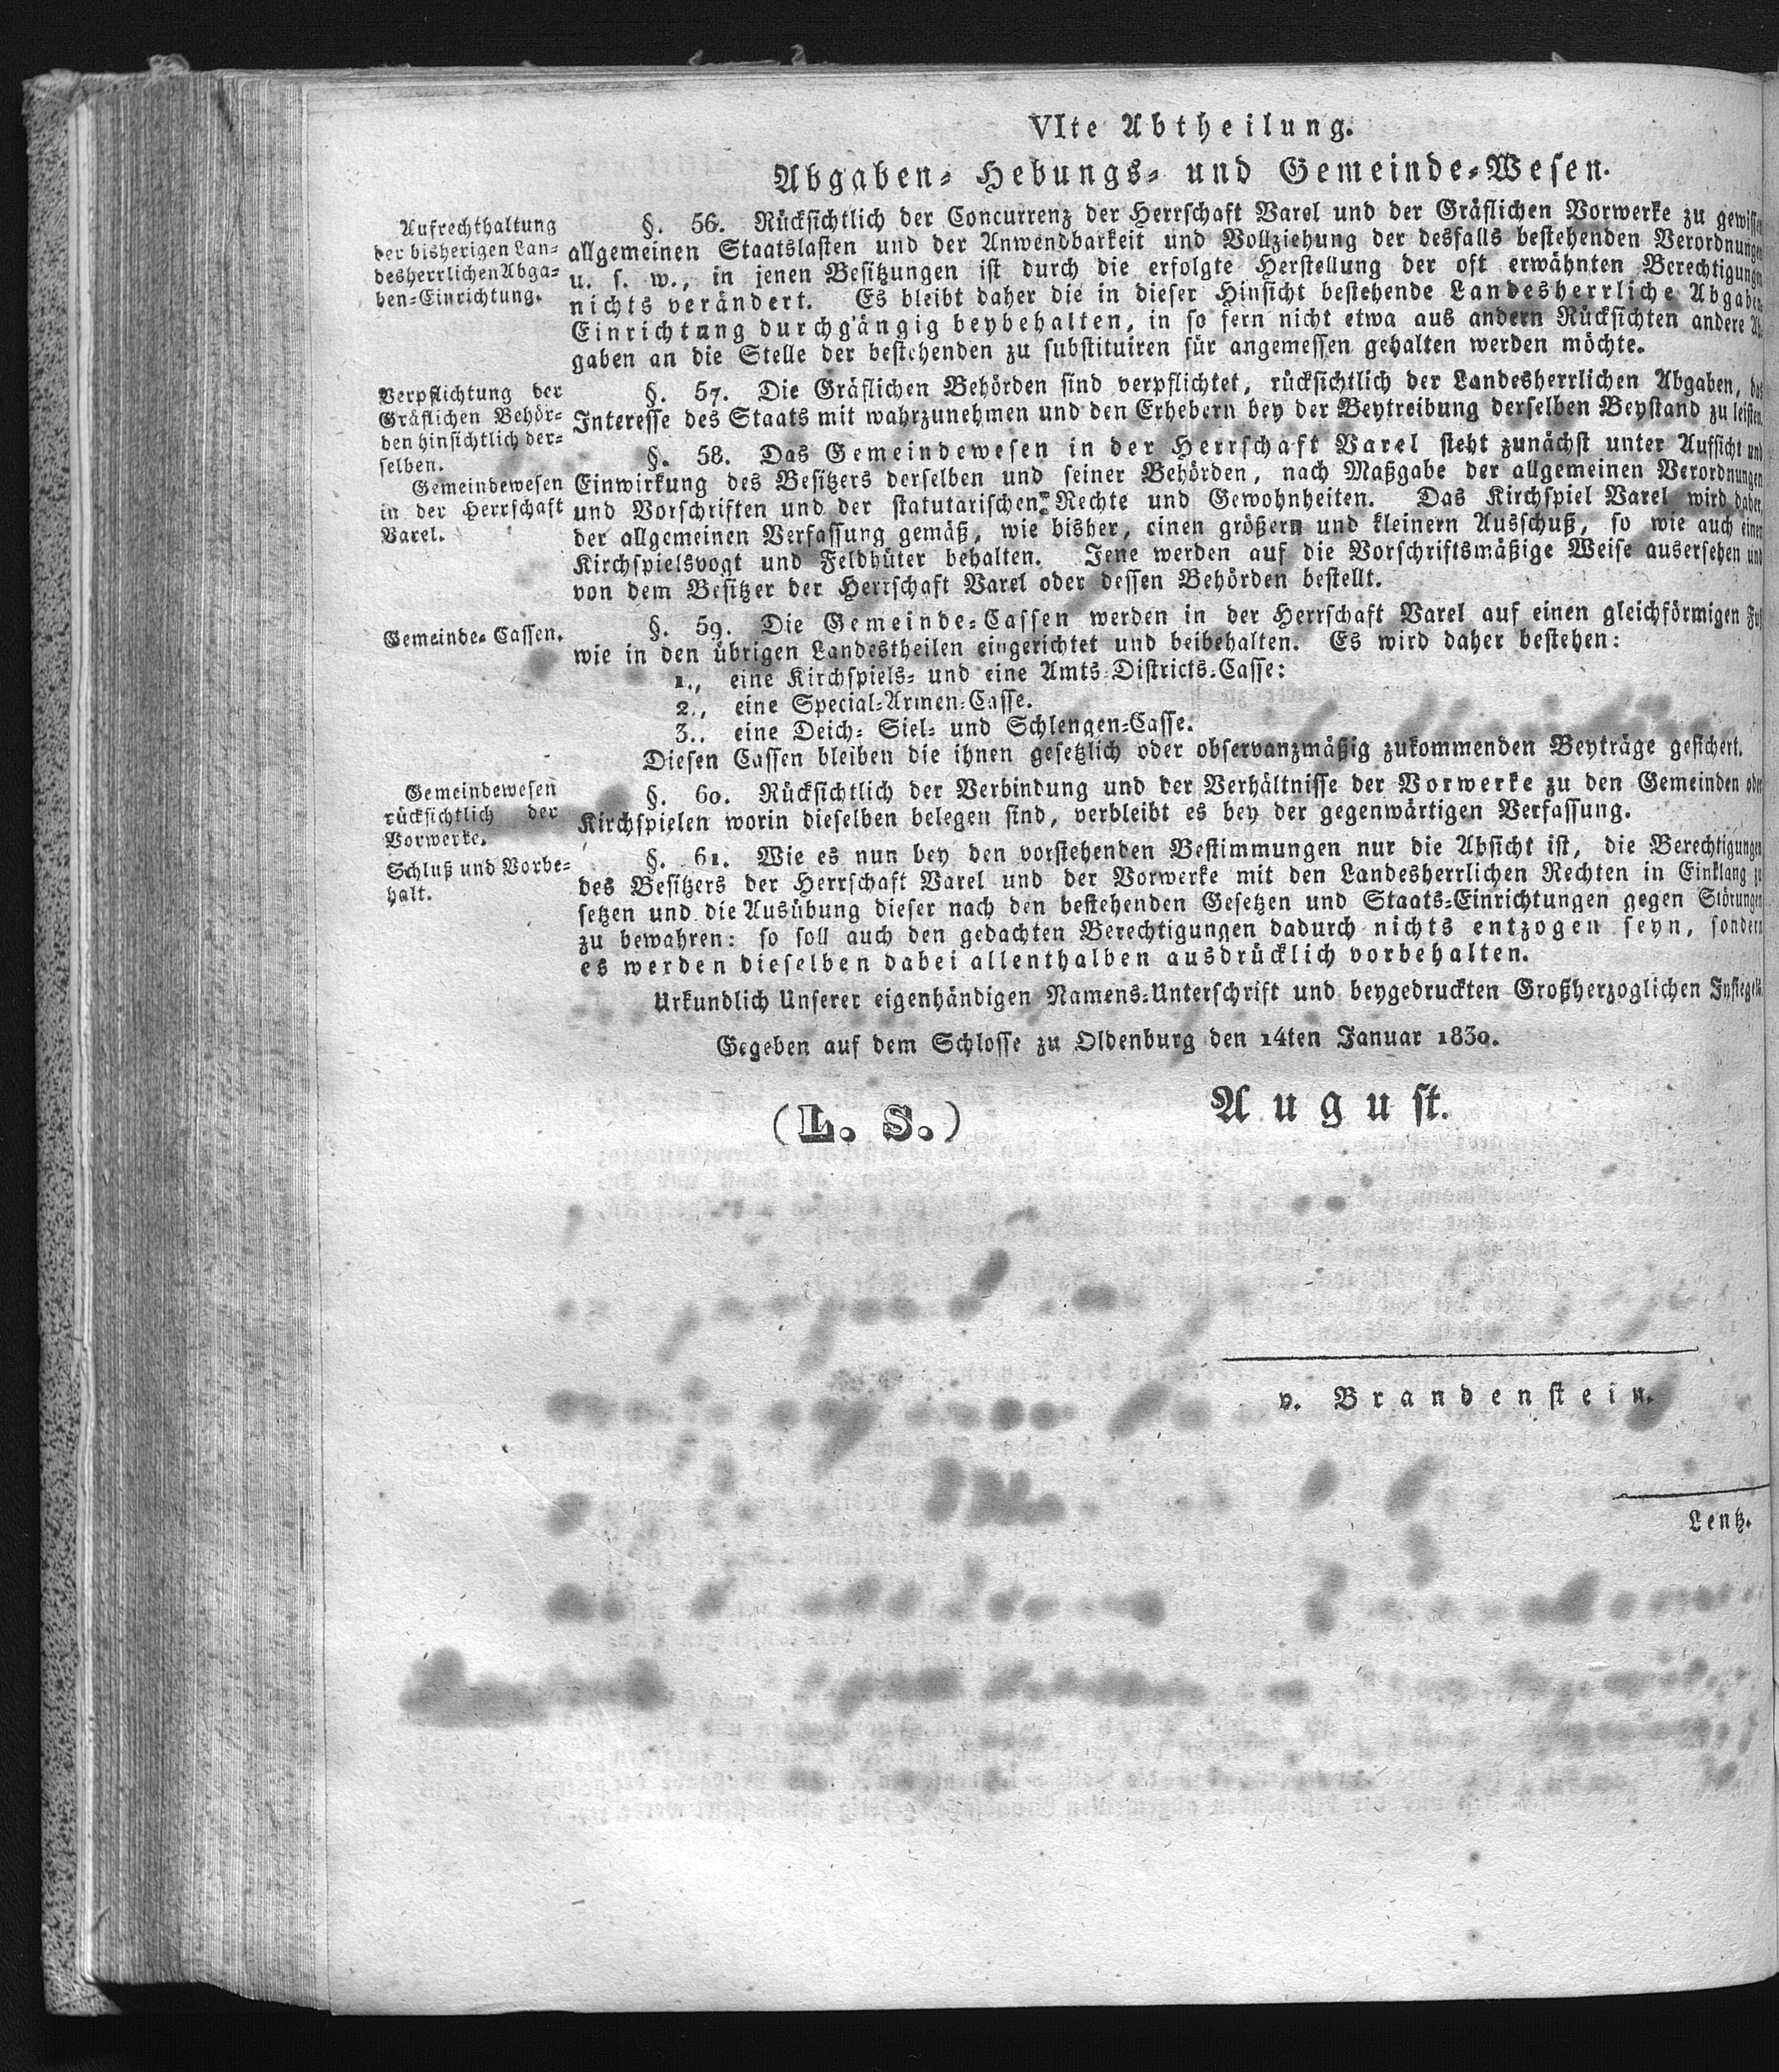 VIte Abtheilung.
Abgaben- Hebungs- und Gemeinde-Wesen.
Aufrechthaltung
der bisherigen Lan-
desherrlichen Abga-
ben-Einrichtung.
§. 56. Rücksichtlich der Concurrenz der Herrschaft Varel und der Gräflichen Vorwerke zu gewissen
allgemeinen Staatslasten und der Anwendbarkeit und Vollziehung der desfalls bestehenden Verordnungen
u. s. w., in jenen Besitzungen ist durch die erfolgte Herstellung der oft erwähnten Berechtigungen
nichts verändert. Es bleibt daher die in dieser Hinsicht bestehende Landesherrliche Abgaben-
Einrichtung durchgängig beybehalten, in so fern nicht etwa aus andern Rücksichten andere Ab-
gaben an die Stelle der bestehenden zu substituiren für angemessen gehalten werden möchte.
Verpflichtung der
Gräflichen Behör-
den hinsichtlich der-
selben.
§. 57. Die Gräflichen Behörden sind verpflichtet, rücksichtlich der Landesherrlichen Abgaben, das
Interesse des Staats mit wahrzunehmen und den Erhebern bey der Beytreibung derselben Beystand zu leisten.
Gemeindewesen
in der Herrschaft
Varel.
§. 58. Das Gemeindewesen in der Herrschaft Varel steht zunächst unter Aufsicht und
Einwirkung des Besitzers derselben und seiner Behörden, nach Maßgabe der allgemeinen Verordnungen
und Vorschriften und der statutarischen Rechte und Gewohnheiten. Das Kirchspiel Varel wird daher,
der allgemeinen Verfassung gemäß, wie bisher, einen größern und kleinern Ausschuß, so wie auch einen
Kirchspielsvogt und Feldhüter behalten. Jene werden auf die Vorschriftsmäßige Weise ausersehen und
von dem Besitzer der Herrschaft Varel oder dessen Behörden bestellt.
Gemeinde- Cassen.
§. 59. Die Gemeinde-Cassen werden in der Herrschaft Varel auf einen gleichförmigen Fuß
wie in den übrigen Landestheilen eingerichtet und beibehalten. Es wird daher bestehen:
1., eine Kirchspiels- und eine Amts-Districts-Casse:
2., eine Special-Armen-Casse.
3., eine Deich- Siel- und Schlengen-Casse.
Diesen Cassen bleiben die ihnen gesetzlich oder observanzmäßig zukommenden Beyträge gesichert.
Gemeindewesen
rücksichtlich der
Vorwerke.
§. 60. Rücksichtlich der Verbindung und der Verhältnisse der Vorwerke zu den Gemeinden oder
Kirchspielen worin dieselben belegen sind, verbleibt es bey der gegenwärtigen Verfassung.
Schluß und Vorbe-
halt.
§. 61. Wie es nun bey den vorstehenden Bestimmungen nur die Absicht ist, die Berechtigungen
des Besitzers der Herrschaft Varel und der Vorwerke mit den Landesherrlichen Rechten in Einklang zu
setzen und die Ausübung dieser nach den bestehenden Gesetzen und Staats-Einrichtungen gegen Störungen
zu bewahren: so soll auch den gedachten Berechtigungen dadurch nichts entzogen seyn, sondern
es werden dieselben dabei allenthalben ausdrücklich vorbehalten.
Urkundlich Unserer eigenhändigen Namens-Unterschrift und beygedruckten Großherzoglichen Insiegels.
Gegeben auf dem Schlosse zu Oldenburg den 14ten Januar 1830.
(L. S.) August.
v. Brandenstein.
Lentz.